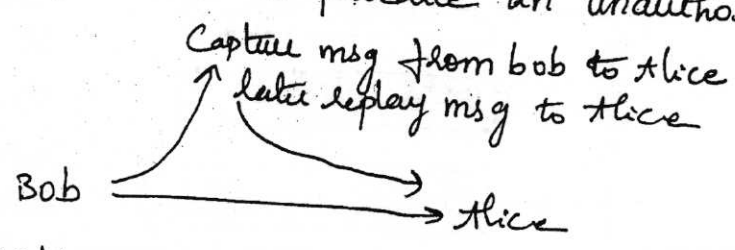 an unautho
Capture msg from bob to Alice
later replay msg to Alice
Bob
Alice